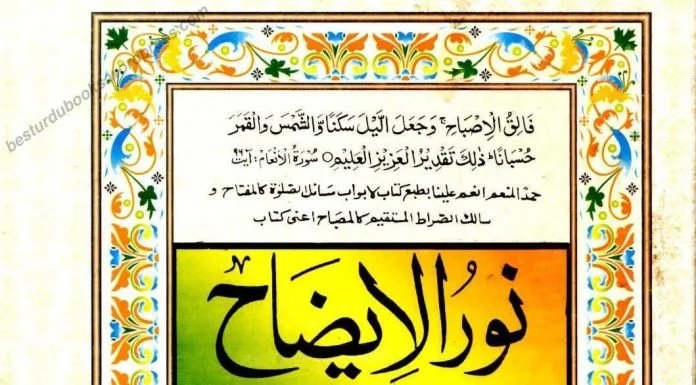 besturdubooks.wordpress.com
فَالِقُ الْاِصْبَاحِ ۚ وَجَعَلَ الَّيْلَ سَكَنًا وَّالشَّمْسَ وَالْقَمَرَ
حُسْبَانًا ؕ ذٰلِكَ تَقْدِيْرُ الْعَزِيْزِ الْعَلِيْمِ ○ سُوْرَةُ الْاَنْعَام: آيت ٩٦
حمدا لمنعم انعم علينا بطبع كتاب لابواب مسائل الصلوة كالمفتاح و
سالك الصراط المستقيم كالمصباح اعنى كتاب
نُورُ الْإِيضَاحِ